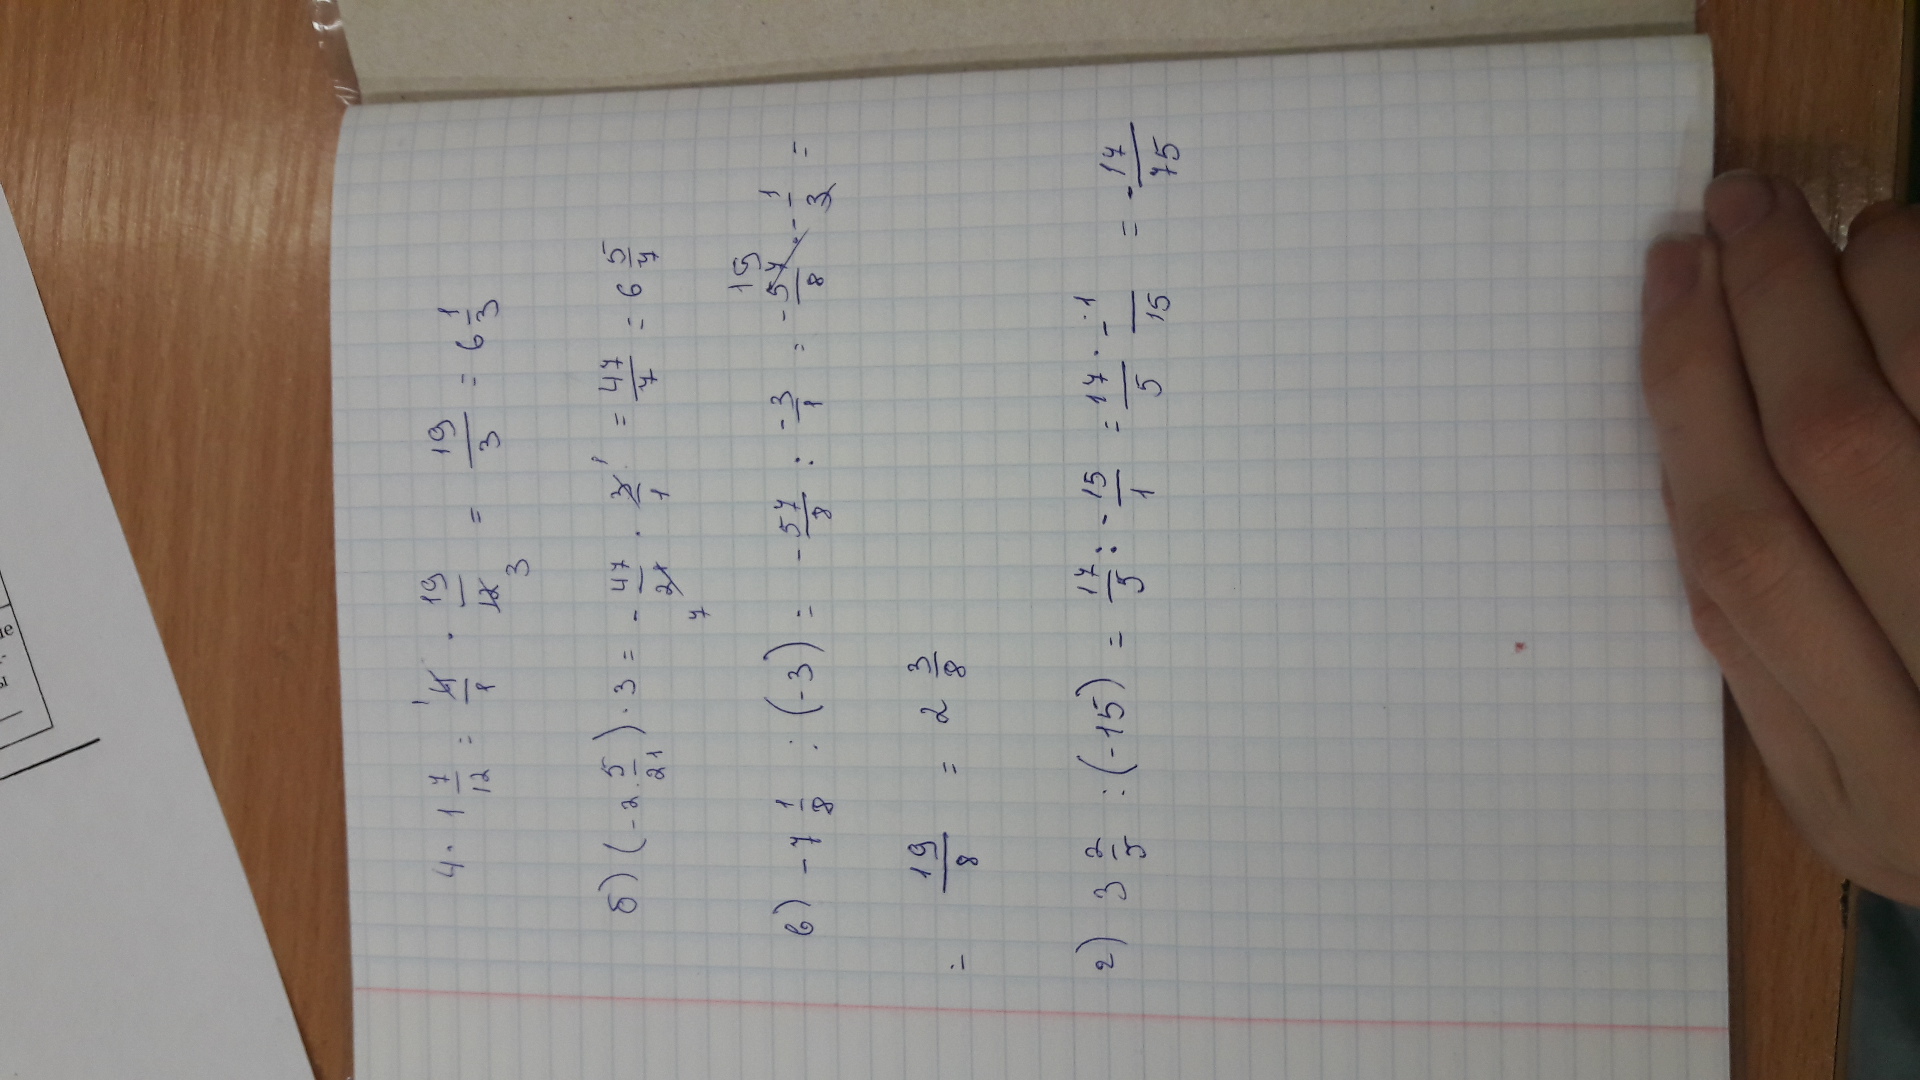 4 · 1 7/12 = 4/1 · 19/12 3 = 19/3 = 6 1/3
б) (-2 · 5/21) · 3 = - 47/21 7 · 3/1 = 47/7 = 6 5/7
в) -7 1/8 : (-3) = -57/8 : -3/1 = - 19 57/8 · - 1/3 =
= 19/8 = 2 3/8
г) 3 2/5 : (-15) = 17/5 : -15/1 = 17/5 · -1/15 = -17/75